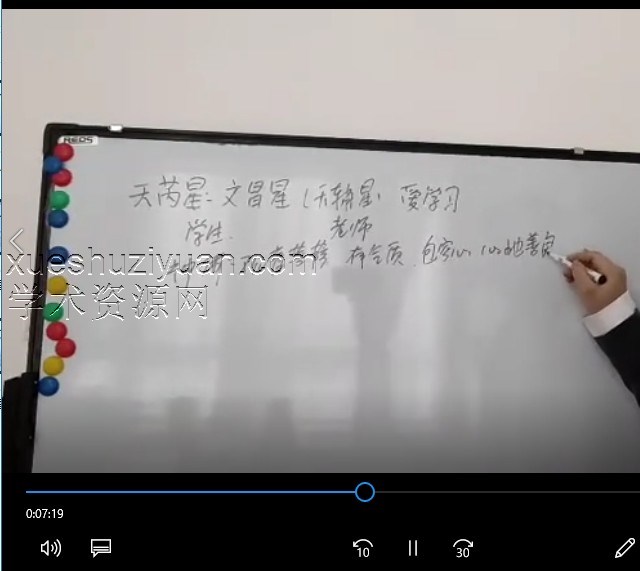 REDS
天芮星: 文昌星 (天辅星) 爱学习
学生. 老师
有气质. 包容心 心地善良
xueshuziyuan.com
学术资源网
0:07:19
10
30